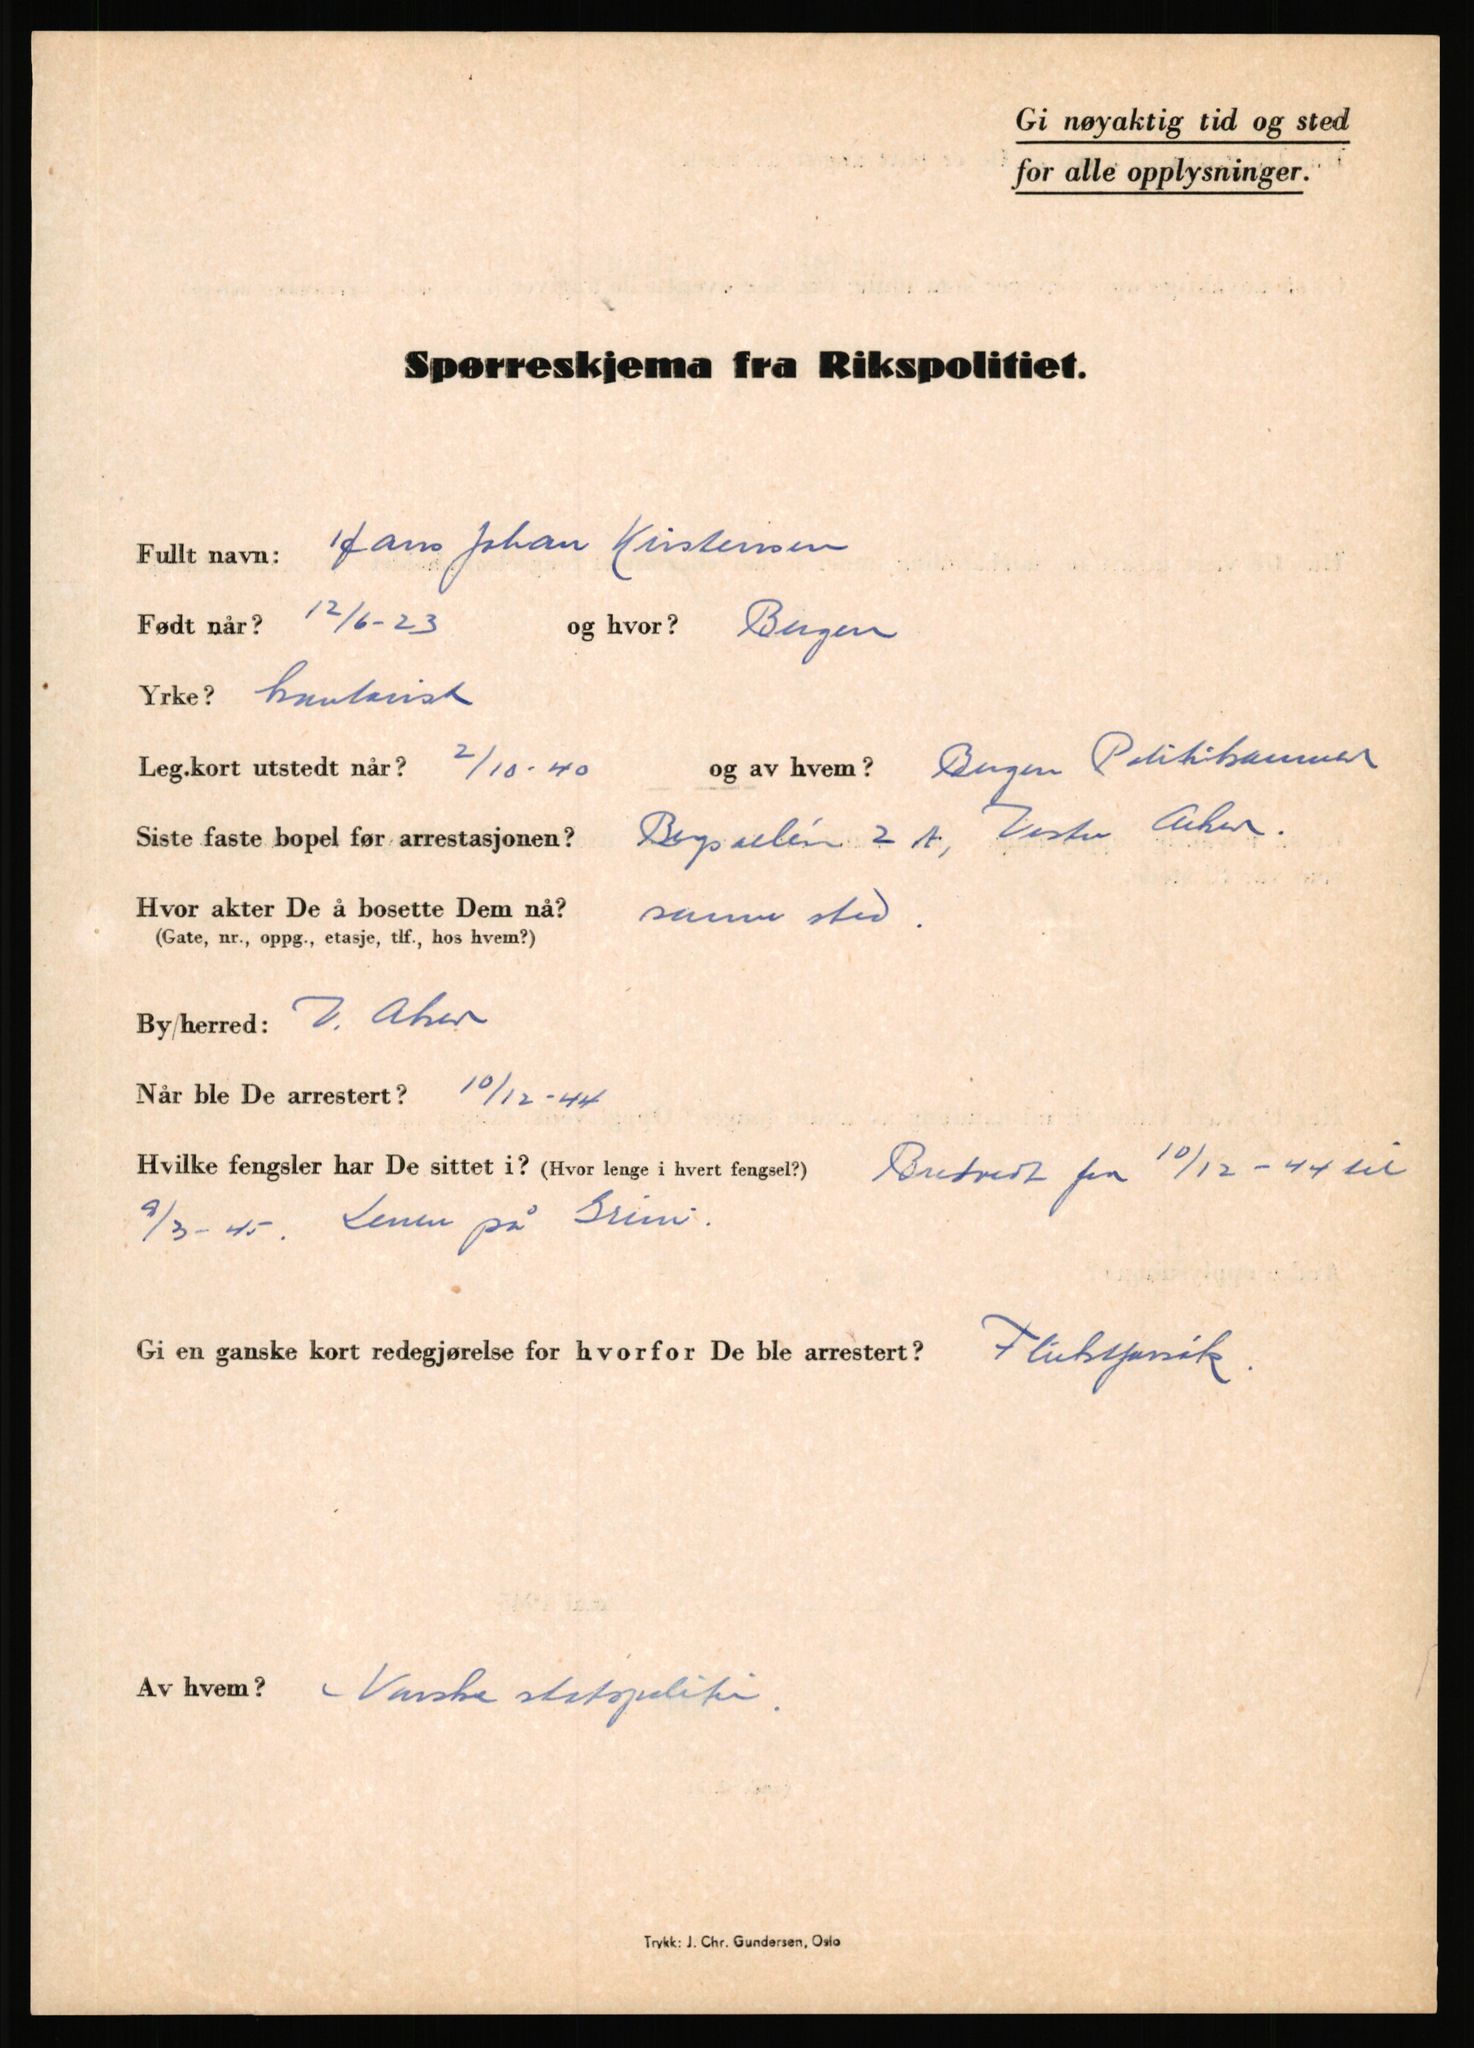 Gi nøyaktig tid og sted
for alle opplysninger.
Spørreskjema fra Rikspolitiet.
Fullt navn: Hans Johan Kirstensen
Født når? 12/6-23 og hvor? Bergen
Yrke? kontorist
Leg.kort utstedt når? 2/10-40 og av hvem? Bergen Politikammer
Siste faste bopel før arrestasjonen? 2 A, Vestre Aker.
Hvor akter De å bosette Dem nå? samme sted.
(Gate, nr., oppg., etasje, tlf., hos hvem?)
By/herred: V. Aker
Når ble De arrestert? 10/12-44
Hvilke fengsler har De sittet i? (Hvor lenge i hvert fengsel?) Bredtvedt fra 10/12-44 til
9/3-45. Senere på Grini.
Gi en ganske kort redegjørelse for hvorfor De ble arrestert? Fluktforsøk.
Av hvem? Norske statspoliti.
Trykk: J. Chr. Gundersen, Oslo